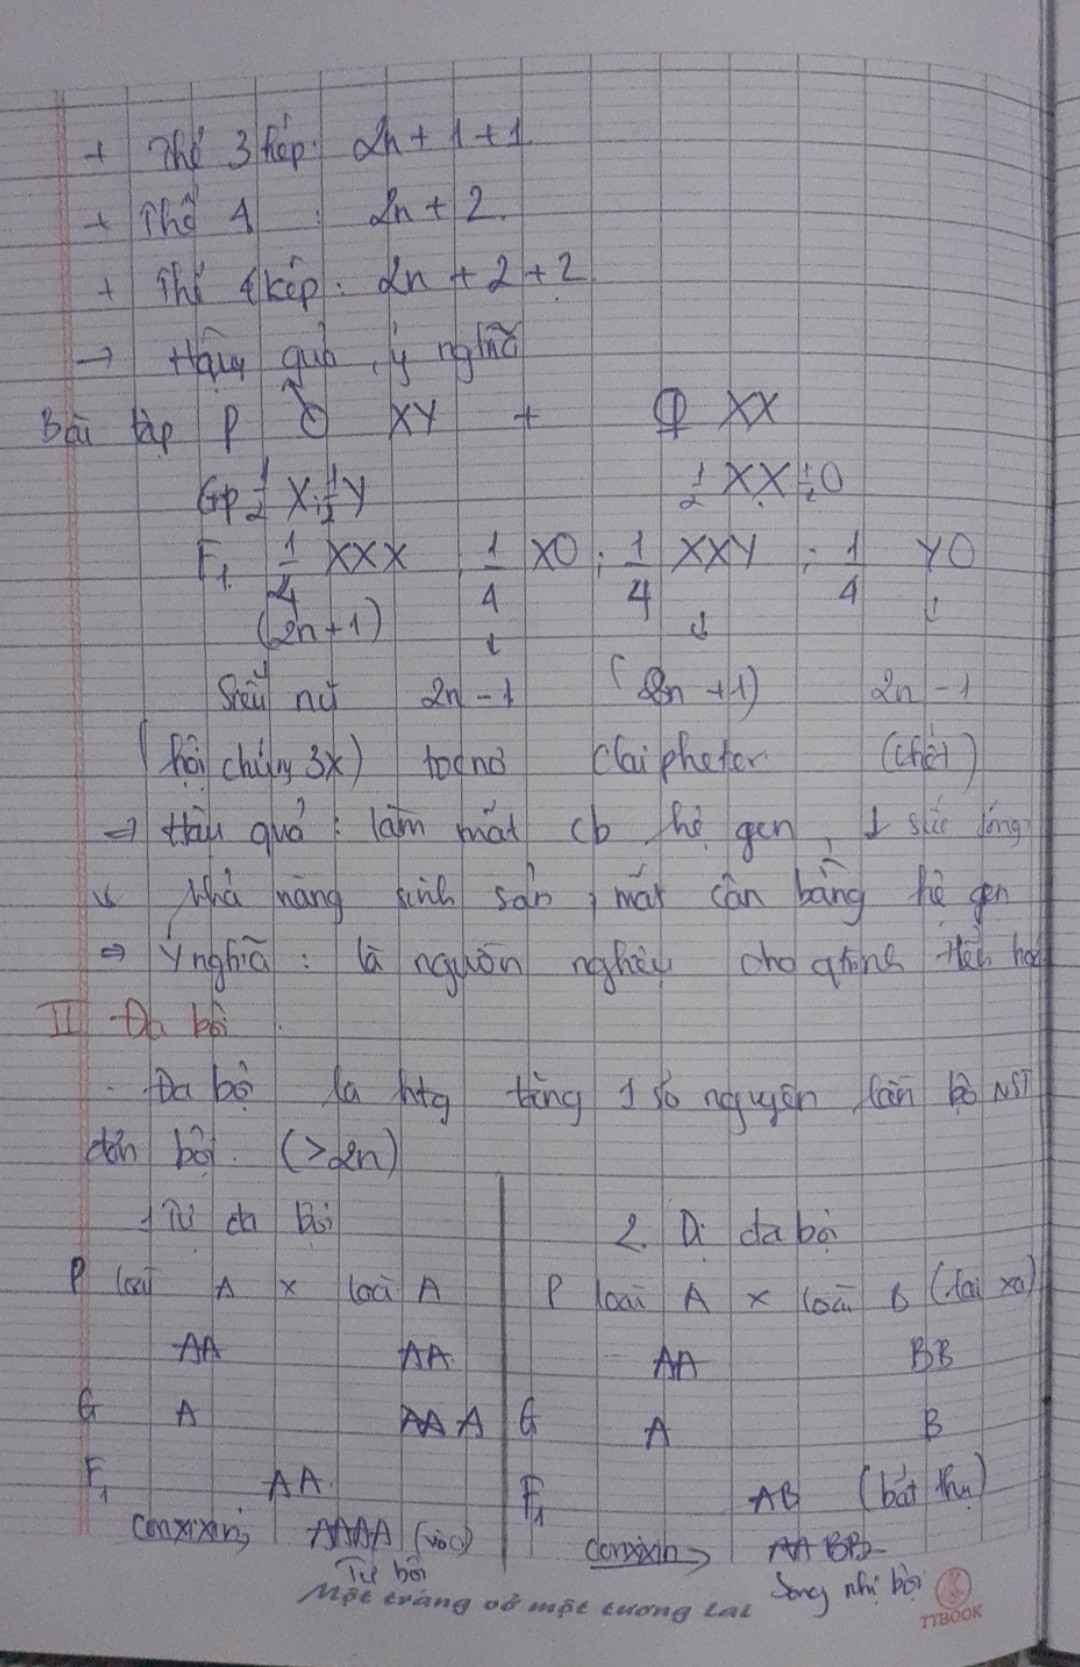 + Thể 3 kép: 2n + 1 + 1
+ Thể 4 : 2n + 2.
+ Thể 4 kép: 2n + 2 + 2
→ Hậu quả, ý nghĩa
Bài tập P ♂ XY + ♀ XX
Gp 1/2 X; 1/2 Y 1/2 XX; 1/2 O
F1. 1/4 XXX, 1/4 XO; 1/4 XXY; 1/4 YO
(2n+1) ↓ ↓ ↓
Siêu nữ 2n - 1 (2n + 1) 2n - 1
(hội chứng 3X) tocno claipheter (chết)
⇒ Hậu quả: làm mất cb hệ gen, ↓ sức sống
↓ khả năng sinh sản, mất cân bằng hệ gen
⇒ Ý nghĩa: là nguồn cho tiến hoá
II Đa bội
- Đa bội là htg tăng 1 số nguyên lần bộ NST
đơn bội. (>2n)
1 Tự đa bội
2. Dị đa bội
P loài A x loài A
P loài A x loài B (lai xa)
AA AA
AA BB
G A A
G A B
F1 AA
F1 AB (bất thụ)
conxixin, AAAA
conxixin → AABB
Tứ bội
Song nhị bội
Một trang vở một tương lai
TTBOOK